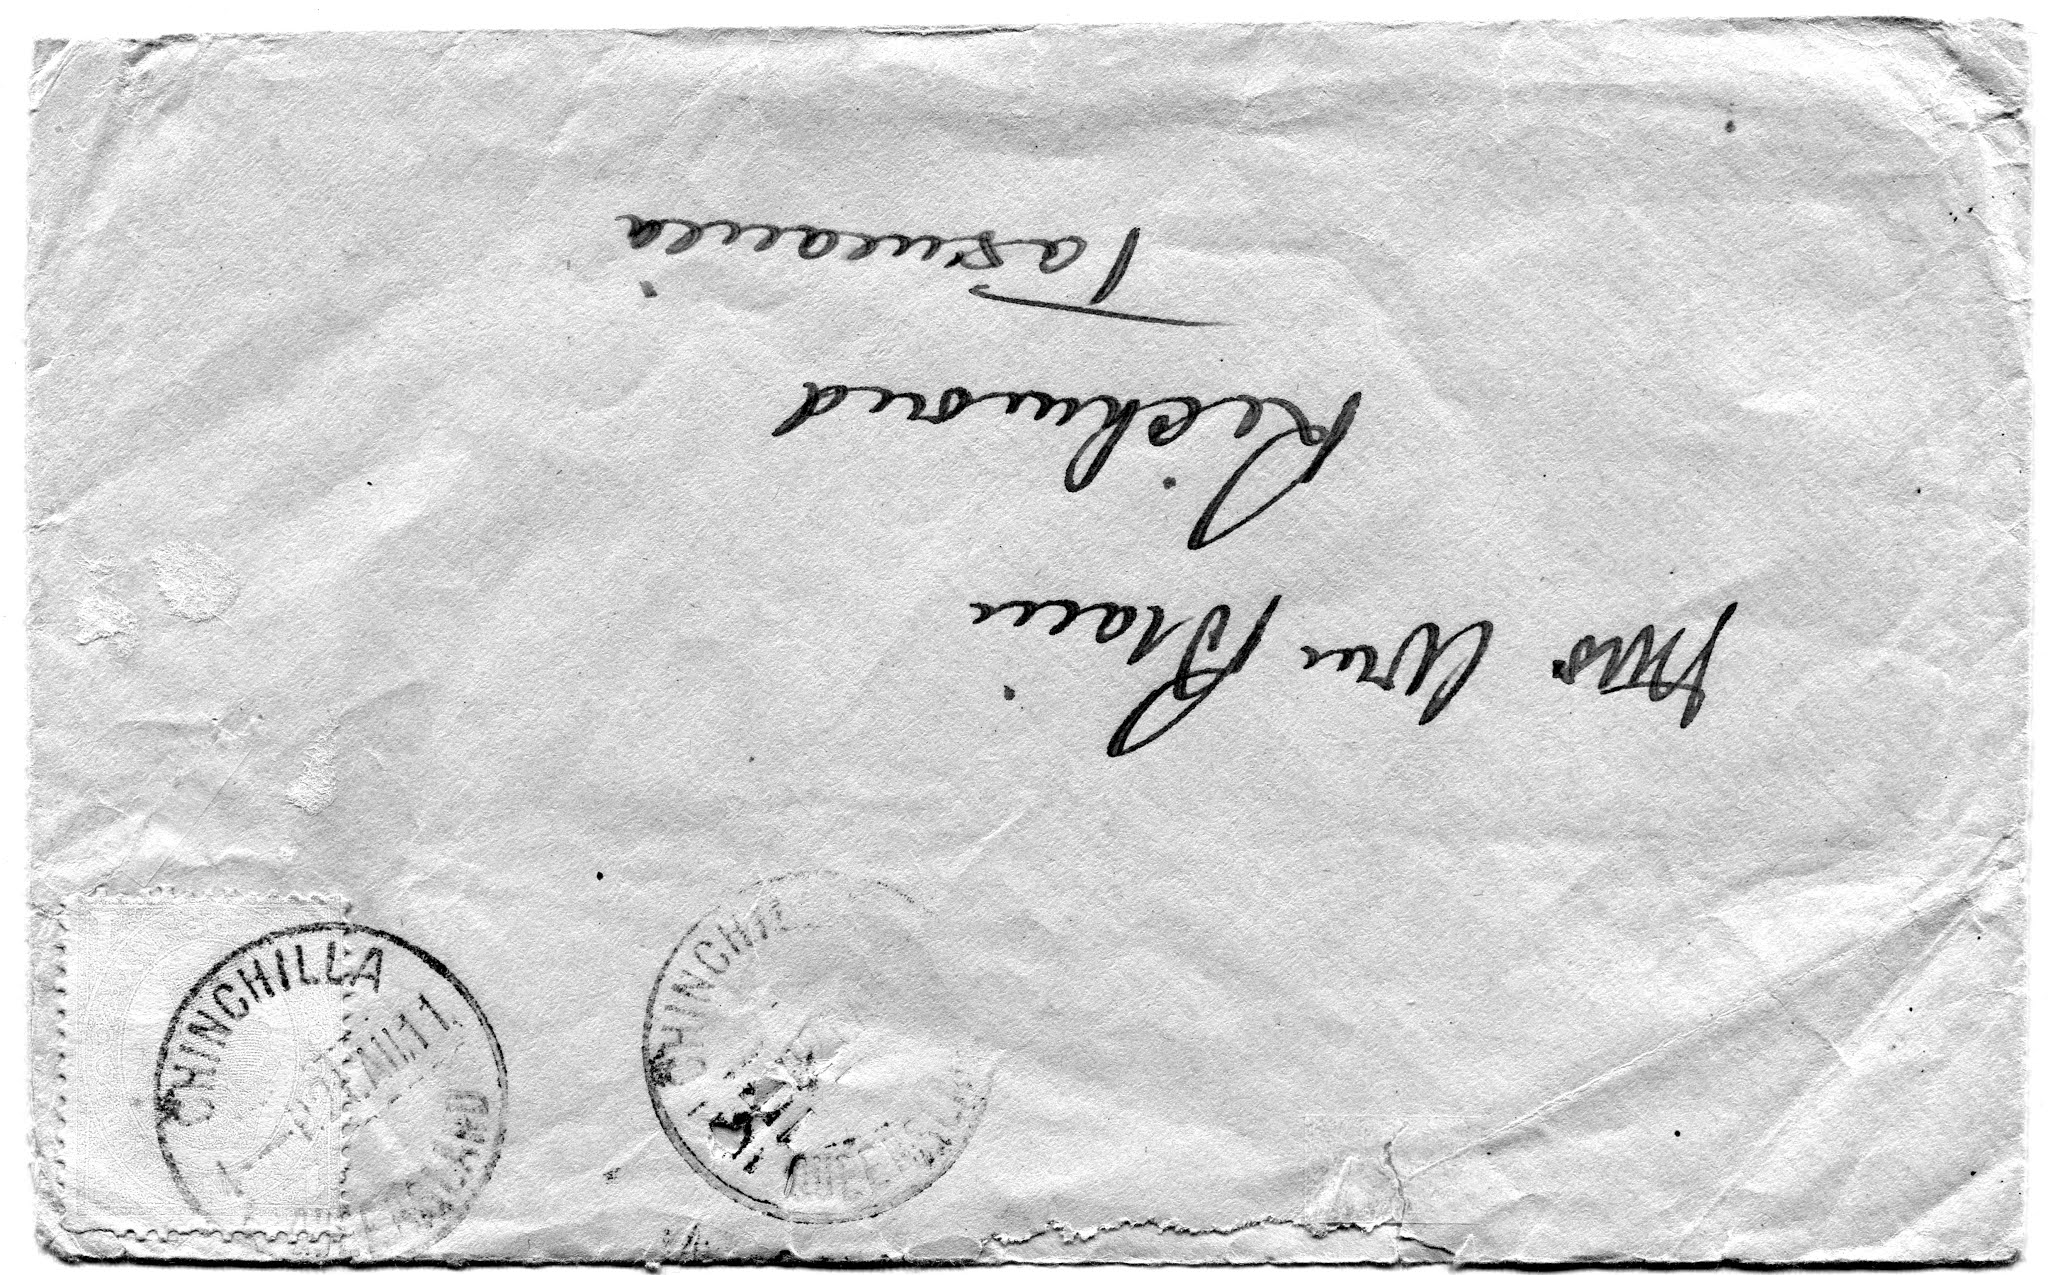 Mrs Wm Blain
Richmond
Tasmania
CHINCHILLA
11
QUEENSLAND
CHINCHIL
QUEENSLAN